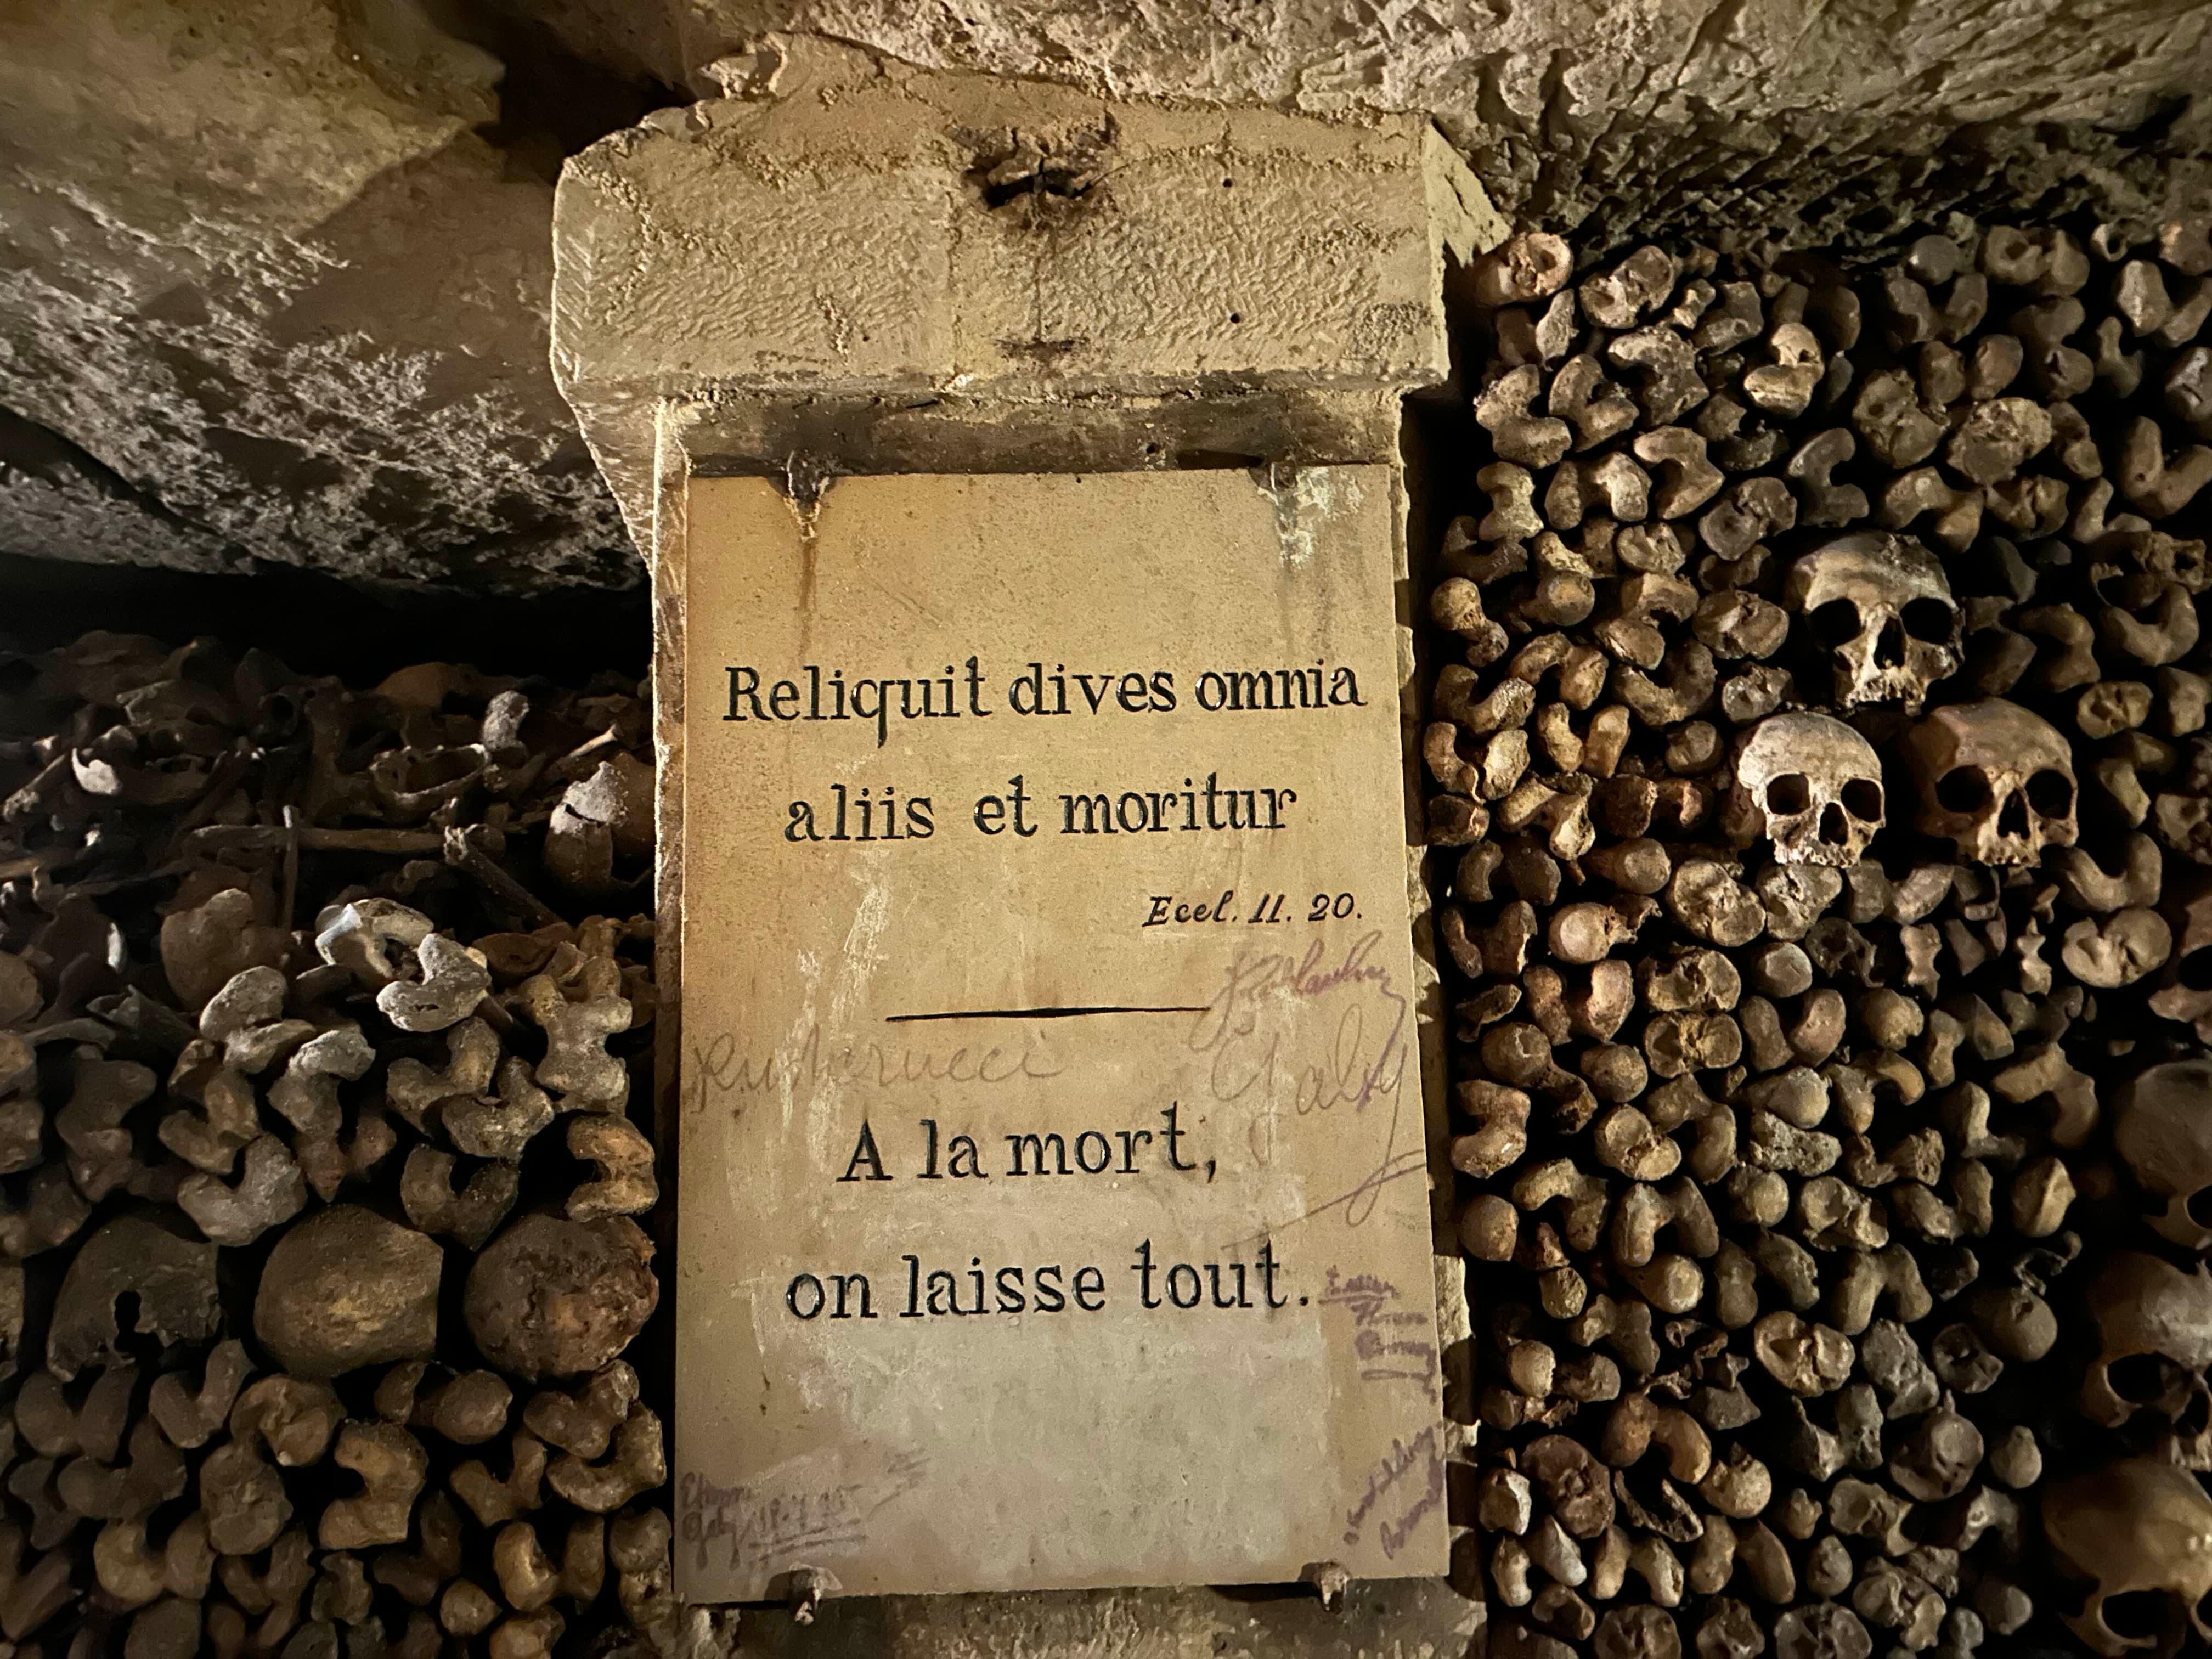 Reliquit dives omnia
aliis et moritur
Ecel. 11. 20.
A la mort,
on laisse tout.